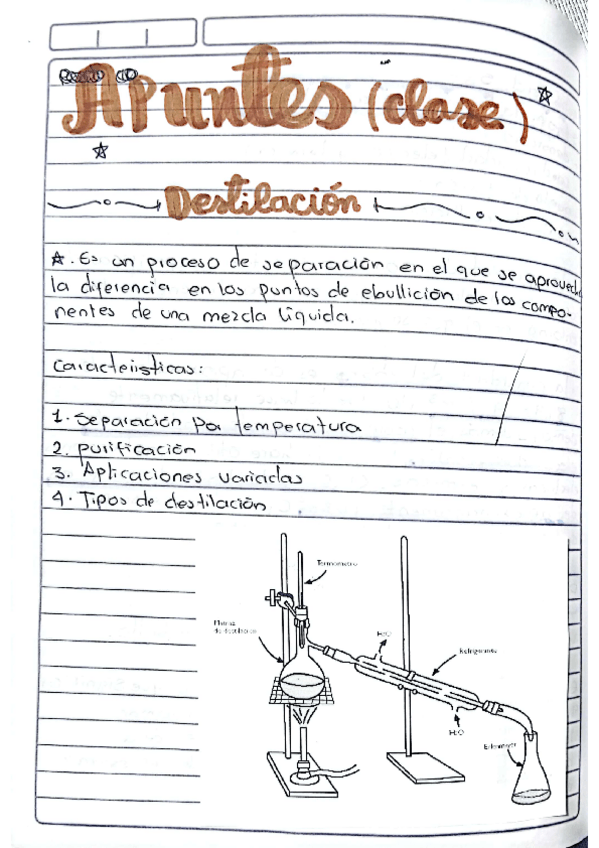 Apuntes (clase)
Destilación
☆. Es un proceso de separación en el que se aprovech
la diferencia en los puntos de ebullición de los compo-
nentes de una mezcla líquida.
Características:
1. Separación por temperatura
2. purificación
3. Aplicaciones variadas
4. Tipos de destilación
Termómetro
H2O
Refrigerante
de destilación
H2O
Erlenmeyer